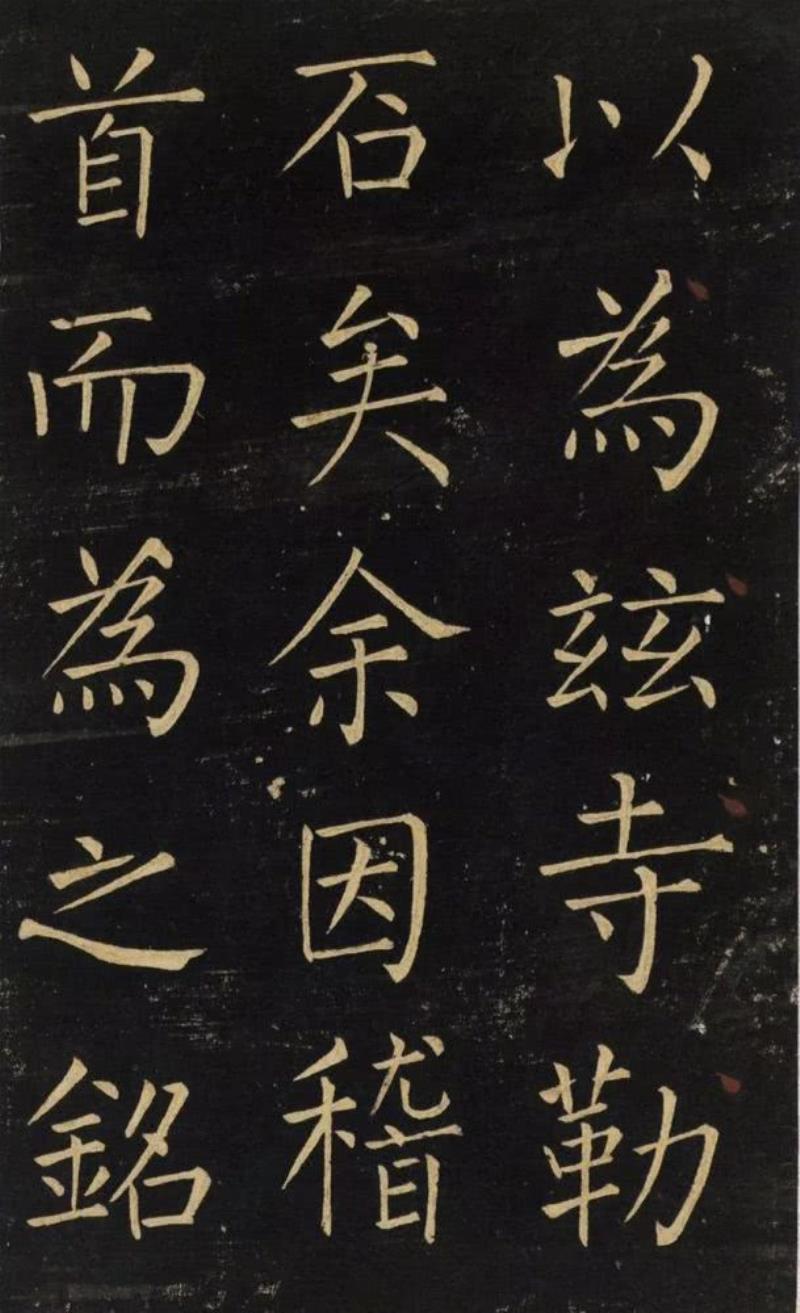 以為茲寺勒
石矣余因稽
首而為之銘